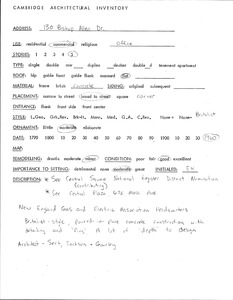 CAMBRIDGE ARCHITECTURAL INVENTORY
ADDRESS: 130 Bishop Allen Dr.
USE: residential commercial religious office
STORIES: 1 2 3 4
TYPE: single double row duplex decker double d tenement apartment
ROOF: hip gable front gable flank mansard flat
MATERIAL: frame brick concrete SIDING: original subsequent
PLACEMENT: narrow to street broad to street square corner
ENTRANCE: flank front side front center
STYLE: None Brutalist
ORNAMENT: little moderate elaborate
DATE: 1790 1800 10 20 30 40 50 60 70 80 90 1900 10 20 30
MAP:
REMODELING: drastic moderate minor CONDITION: poor fair good excellent
IMPORTANCE TO SETTING: detrimental none moderate great INITIALED:
DESCRIPTION: * See Central Square National Register District Nomination
(contributing)
* See Central Plaza 675 Mass Ave
New England Gas and Electric Association Headquarters
Brutalist-style, poured-in-place concrete construction with
detailing and A lot of depth to design
Architect - Sert, Jackson + Gourley